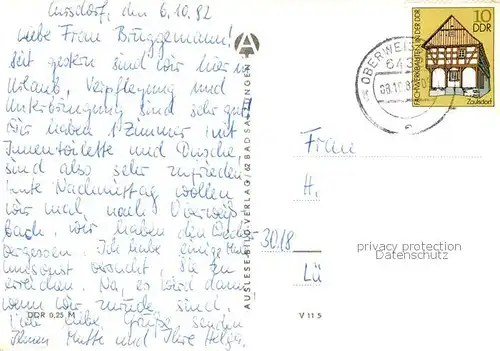 Cursdorf, den 6.10.82
Liebe Frau Brüggemann!
Seit gestern sind wir hier in
Urlaub, Verpflegung und
Unterbringung sind sehr gut
Wir haben 1 Zimmer mit
Innentoilette und Dusche,
sind also sehr zufrieden.
heute Nachmittag wollen
wir mal nach Oberweiß-
bach. Wir haben den
vergessen. Ich habe einige Male
umsonst versucht, Sie zu
erreichen. Na, es wird dann
wenn wir zurück sind.
Viele liebe Grüße senden
Ihnen Mutti und Ihre Helga.
DDR 0,25 M
AUSLESE-BILD-VERLAG/62 BAD SALZUNGEN
A
V 11 5
10
DDR
FACHWERKBAUTEN IN DER DDR
Zaulsdorf
OBERWEIS
643
08.10.8
a
Frau
H.
3018
Lü
privacy protection
Datenschutz